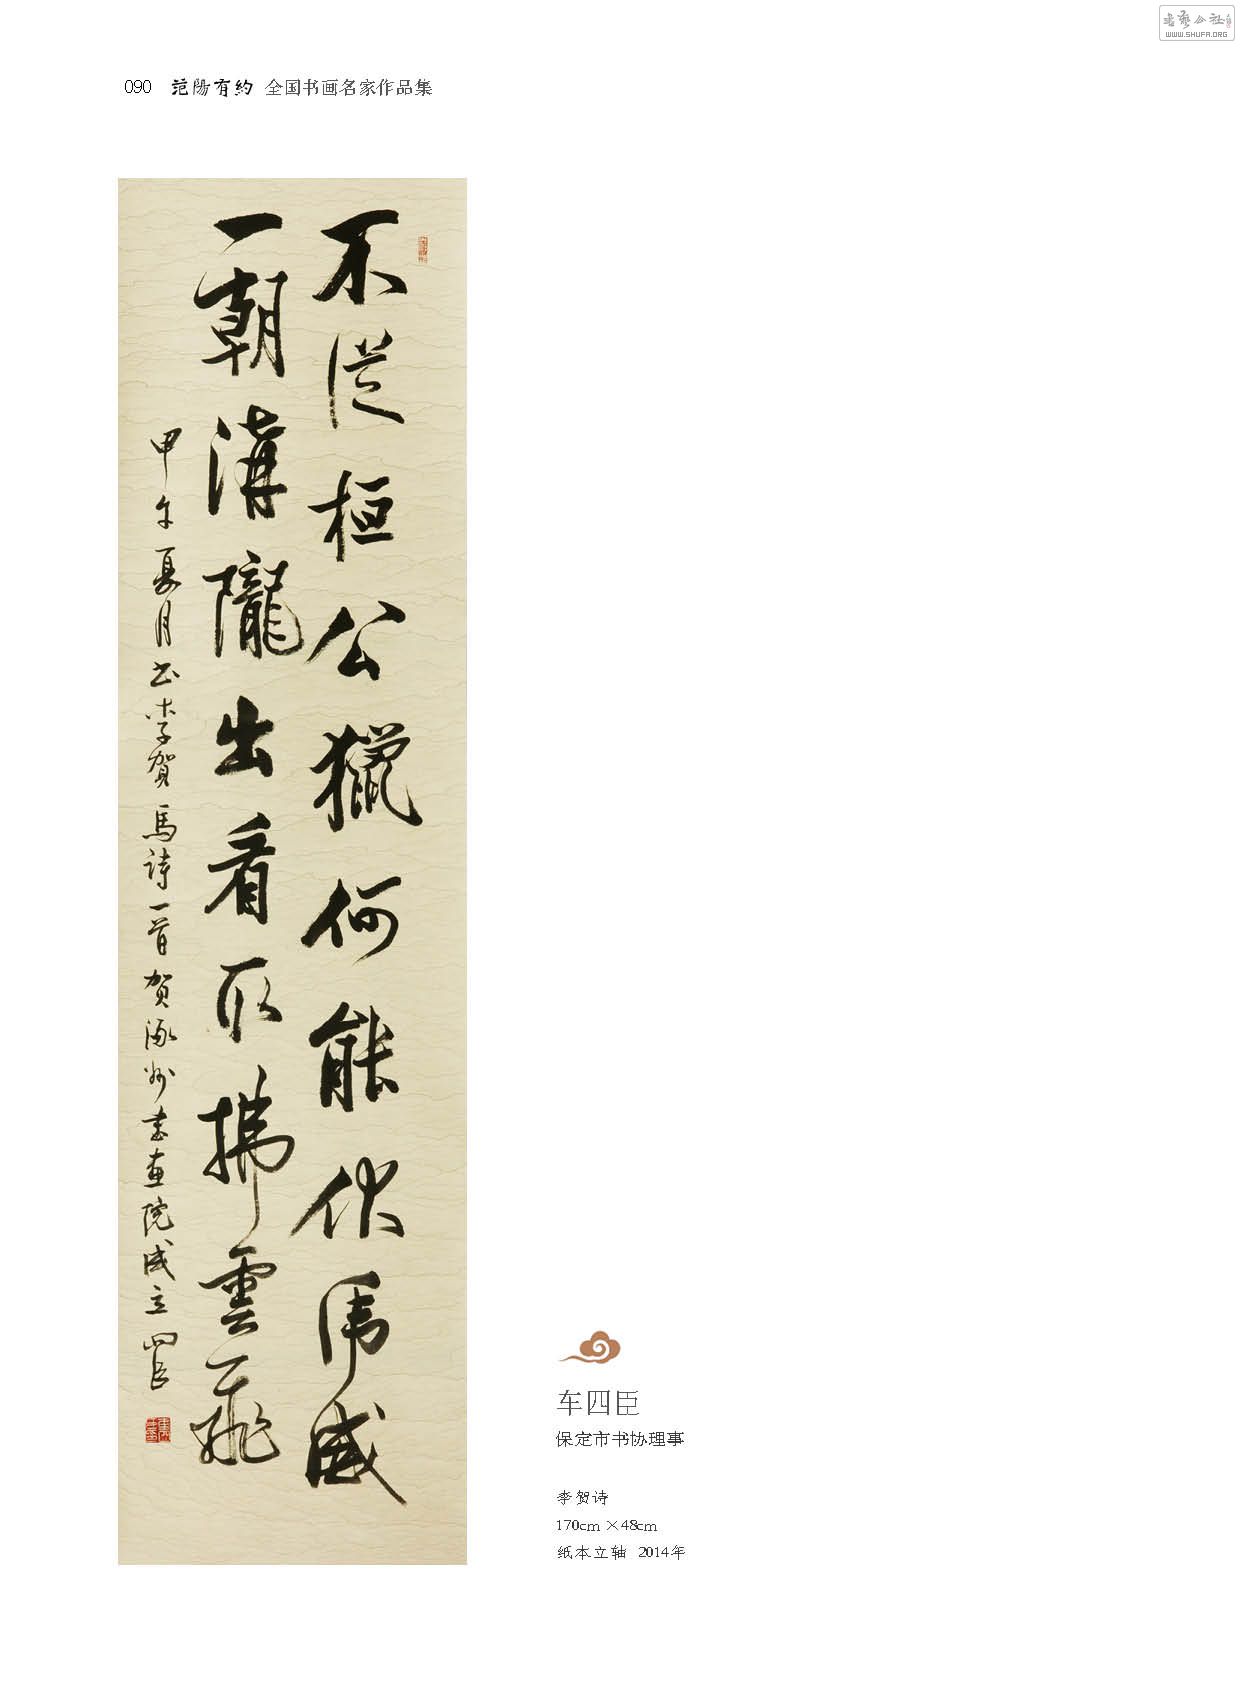 書藝公社
WWW.SHUFA.ORG
090 范陽有約 全国书画名家作品集
不從桓公獵何能伏虎威
一朝溝隴出看取拂雲飛
甲午夏月书李贺馬詩一首贺涿州書畫院成立四臣
车四臣
保定市书协理事
李贺诗
170cm×48cm
纸本立轴 2014年